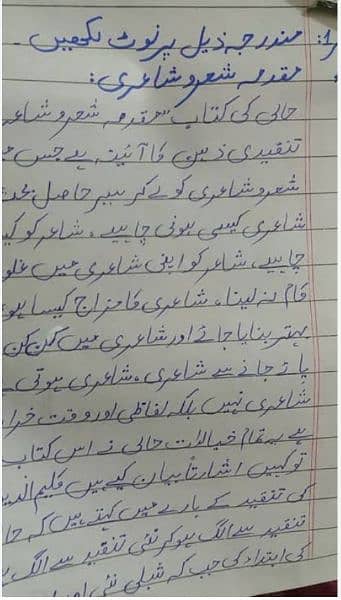 مندرجہ ذیل پر نوٹ لکھیں۔
مقدمہ شعر و شاعری:
حالی کی کتاب "مقدمہ شعر و شاعر
تنقیدی ذہن کا آئینہ ہے جس
شعر و شاعری کو لے کر سیر حاصل بحث
شاعری کیسی ہونی چاہیے، شاعر کو کی
چاہیے، شاعر کو اپنی شاعری میں غلو
کام نہ لینا، شاعری کا مزاج کیسا ہو
بہتر بنایا جائے اور شاعری میں کن کن
پائے جانے سے شاعری، شاعری ہوتی
شاعری نہیں بلکہ لفاظی اور وقت خرا
ہے یہ تمام خیالات حالی نے اس کتاب
تو کہیں اشارتاً بیان کیے ہیں کلیم الدی
کی تنقید کے بارے میں کہتے ہیں کہ حا
تنقید سے الگ ہو کر نئی تنقید سے الگ
کی ابتداء کی جب کہ شبلی نئی اور